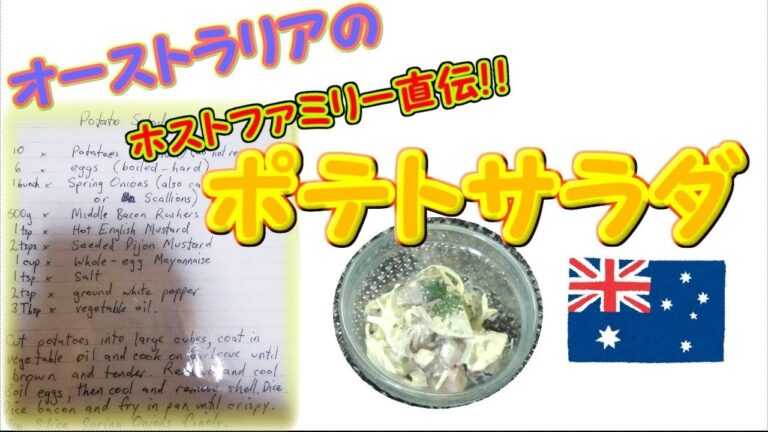 オーストラリアの
ホストファミリー直伝!!
ポテトサラダ
Potato
10 x Potatoes
6 x eggs (boiled-hard)
1 bunch x Spring Onions (also
or Scallions)
500g x Middle Bacon Rashers
1 tsp x Hot English Mustard
2 tsps x Seeded Dijon Mustard
1 cup x Whole-egg Mayonnaise
1 tsp x Salt
2 tsp x ground white pepper
3 Tbsp x vegetable oil.
Cut potatoes into large cubes, coat in
vegetable oil and cook on until
brown and tender. and cool.
Boil eggs, then cool and remove shell. Dice.
Dice bacon and fry in pan until crispy.
Slice Spring Onions finely.